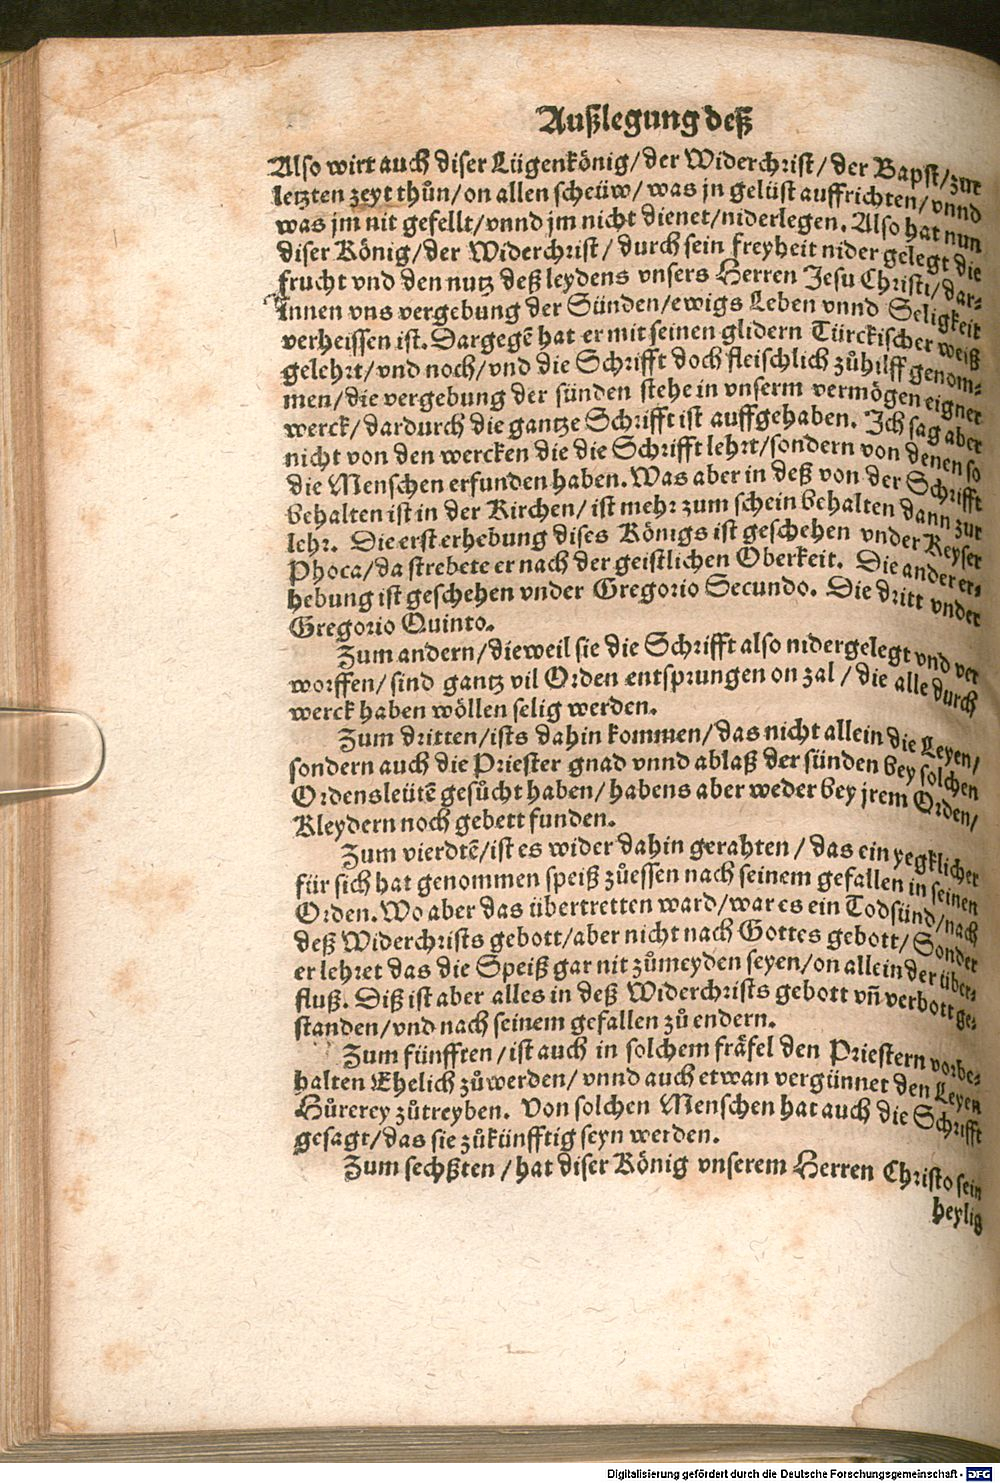 Außlegung deß
Also wirt auch diser Lügenkönig/ der Widerchrist/ der Bapst/ zur
letzten zeyt thůn/ on allen scheüw/ was jn gelüst auffrichten/ vnnd
was jm nit gefellt/ vnnd jm nicht dienet/ niderlegen. Also hat nun
diser König/ der Widerchrist/ durch sein freyheit nider gelegt die
frucht vnd den nutz deß leydens vnsers Herren Jesu Christi/ dar⸗
Innen vns vergebung der Sünden/ ewigs Leben vnnd Seligkeit
verheissen ist. Dargegẽ hat er mit seinen glidern Türckischer weiß
gelehrt/ vnd noch/ vnd die Schrifft doch fleischlich zůhilff genom⸗
men/ die vergebung der sünden stehe in vnserm vermögen eigner
werck/ dardurch die gantze Schrifft ist auffgehaben. Ich sag aber
nicht von den wercken die die Schrifft lehrt/ sondern von denen so
die Menschen erfunden haben. Was aber in deß von der Schrifft
behalten ist in der Kirchen/ ist mehr zum schein behalten dann zur
lehr. Die erst erhebung dises Königs ist geschehen vnder Keyser
Phoca/ da strebete er nach der geistlichen Oberkeit. Die ander er⸗
hebung ist geschehen vnder Gregorio Secundo. Die dritt vnder
Gregorio Quinto.
Zum andern/ dieweil sie die Schrifft also nidergelegt vnd ver
worffen/ sind gantz vil Orden entsprungen on zal/ die alle durch
werck haben wöllen selig werden.
Zum dritten/ ists dahin kommen/ das nicht allein die Leyen/
sondern auch die Priester gnad vnnd ablaß der sünden bey solchen
Ordensleütẽ gesůcht haben/ habens aber weder bey jrem Orden/
Kleydern noch gebett funden.
Zum vierdtẽ/ ist es wider dahin gerahten/ das ein yegklicher
für sich hat genommen speiß zůessen nach seinem gefallen in seinen
Orden. Wo aber das übertretten ward/ war es ein Todsünd/ nach
deß Widerchrists gebott/ aber nicht nach Gottes gebott/ Sonder
er lehret das die Speiß gar nit zůmeyden seyen/ on allein der über⸗
fluß. Diß ist aber alles in deß Widerchrists gebott vñ verbott ge⸗
standen/ vnd nach seinem gefallen zů endern.
Zum fünfften/ ist auch in solchem fräfel den Priestern vorbe⸗
halten Ehelich zůwerden/ vnnd auch etwan vergünnet den Leyen
Hůrerey zůtreyben. Von solchen Menschen hat auch die Schrifft
gesagt/ das sie zůkünfftig seyn werden.
Zum sechßten/ hat diser König vnserem Herren Christo sein
heylig
Digitalisierung gefördert durch die Deutsche Forschungsgemeinschaft - DFG